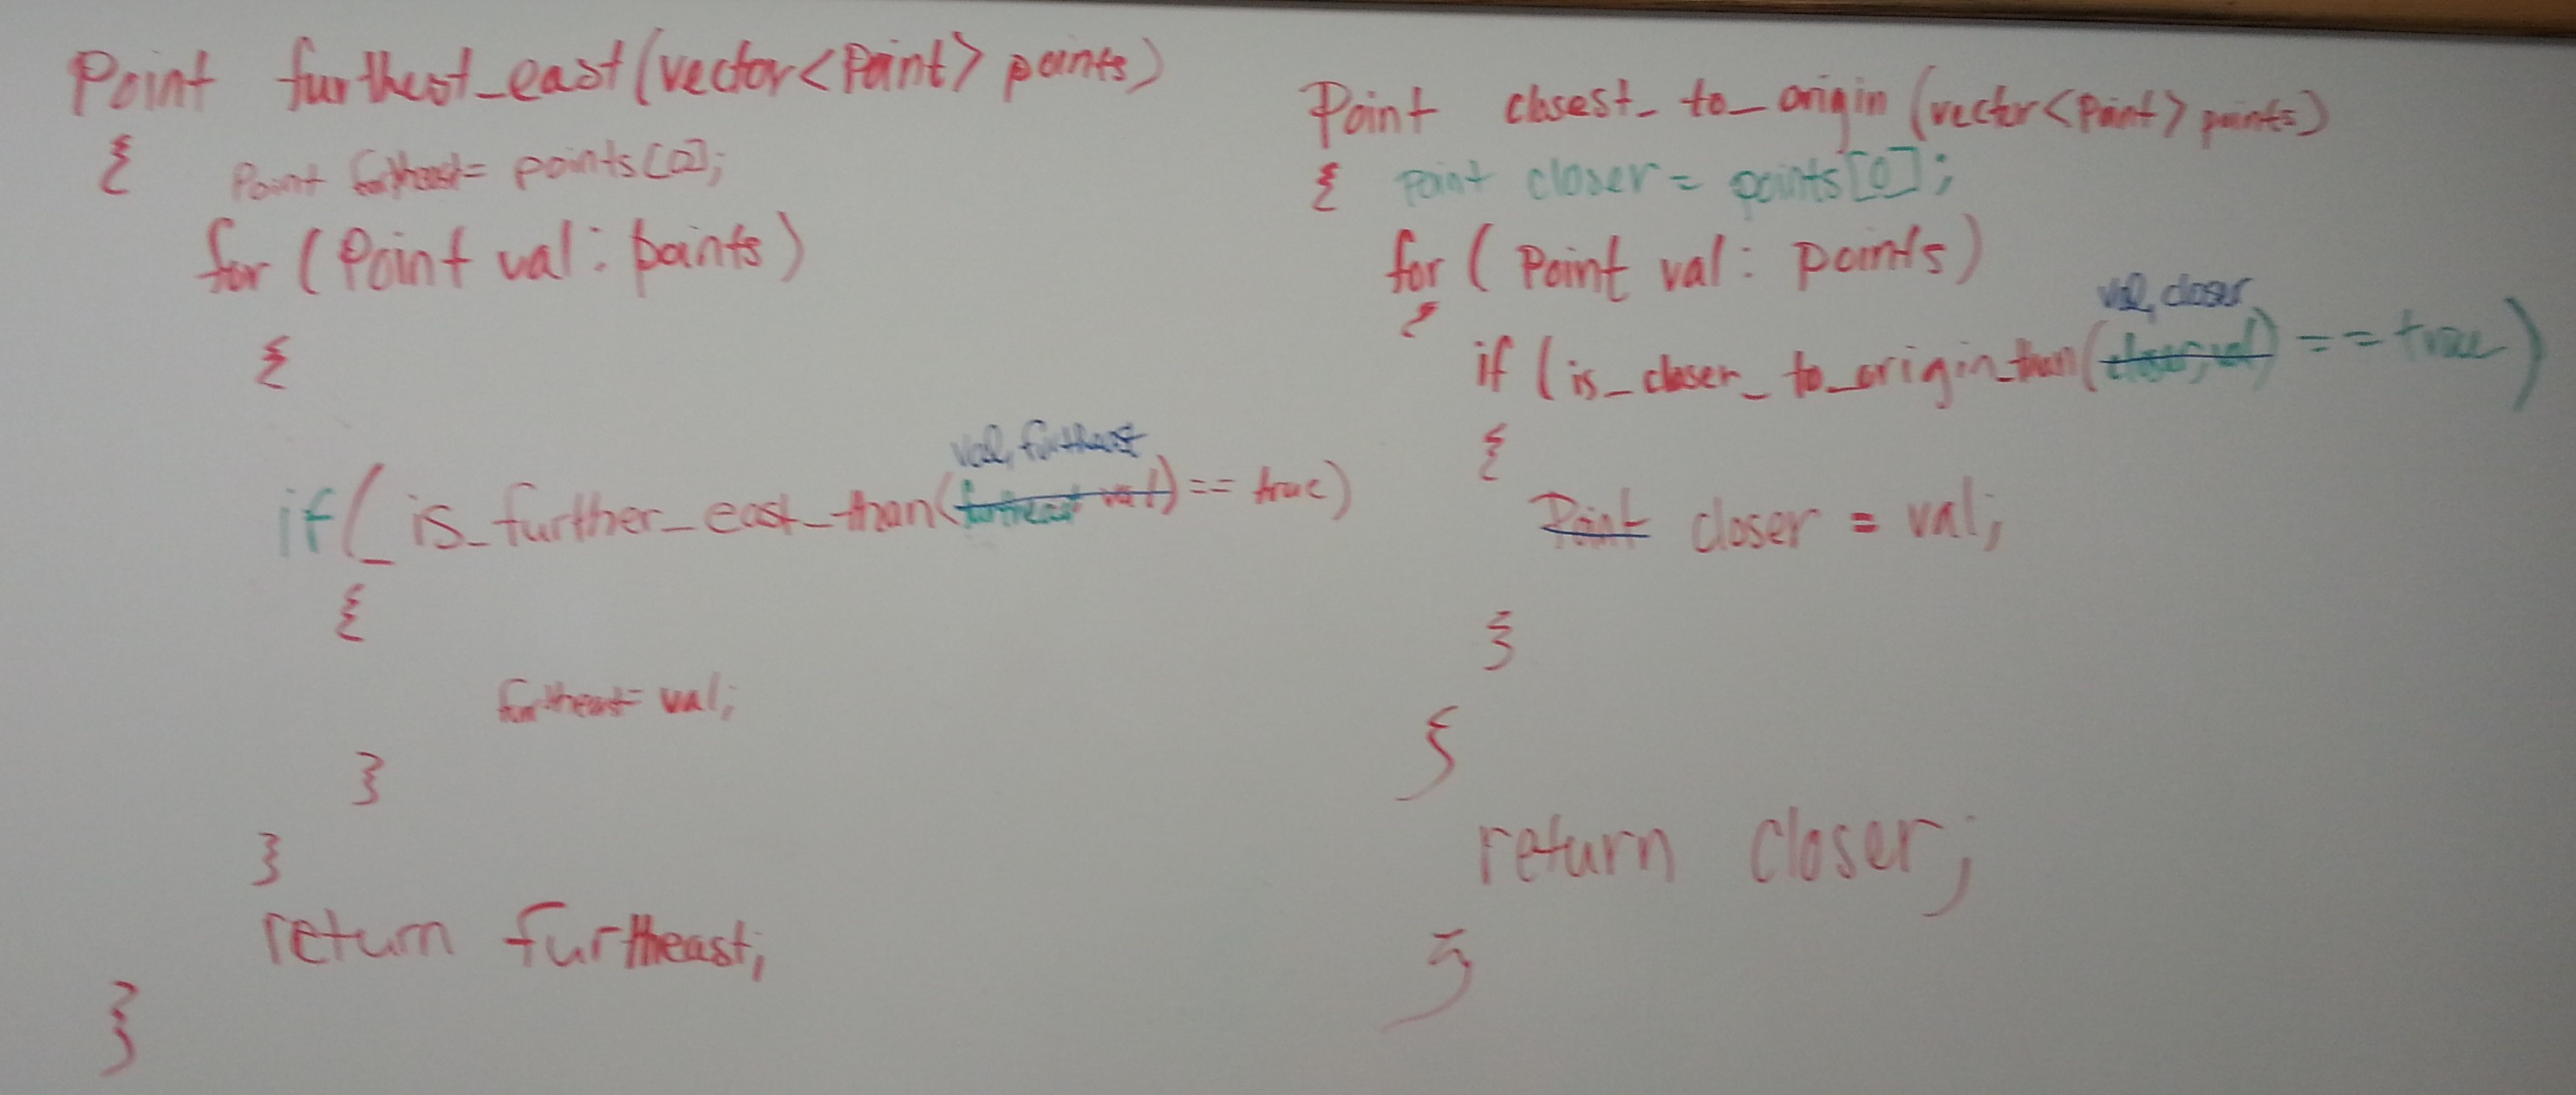 Point furthest_east(vector<Point> points)
{ Point furtheast= points[0];
for (Point val: points)
{
val, furtheast
if( is_further_east_than(furtheast val) == true)
{
furtheast= val;
}
}
return furtheast;
}
Point closest_to_origin (vector<Point> points)
{ Point closer = points[0];
for ( Point val: points)
{
val, closer
if ( is_closer_to_origin_than(closer, val) == true)
{
Point closer = val;
}
}
return closer;
}